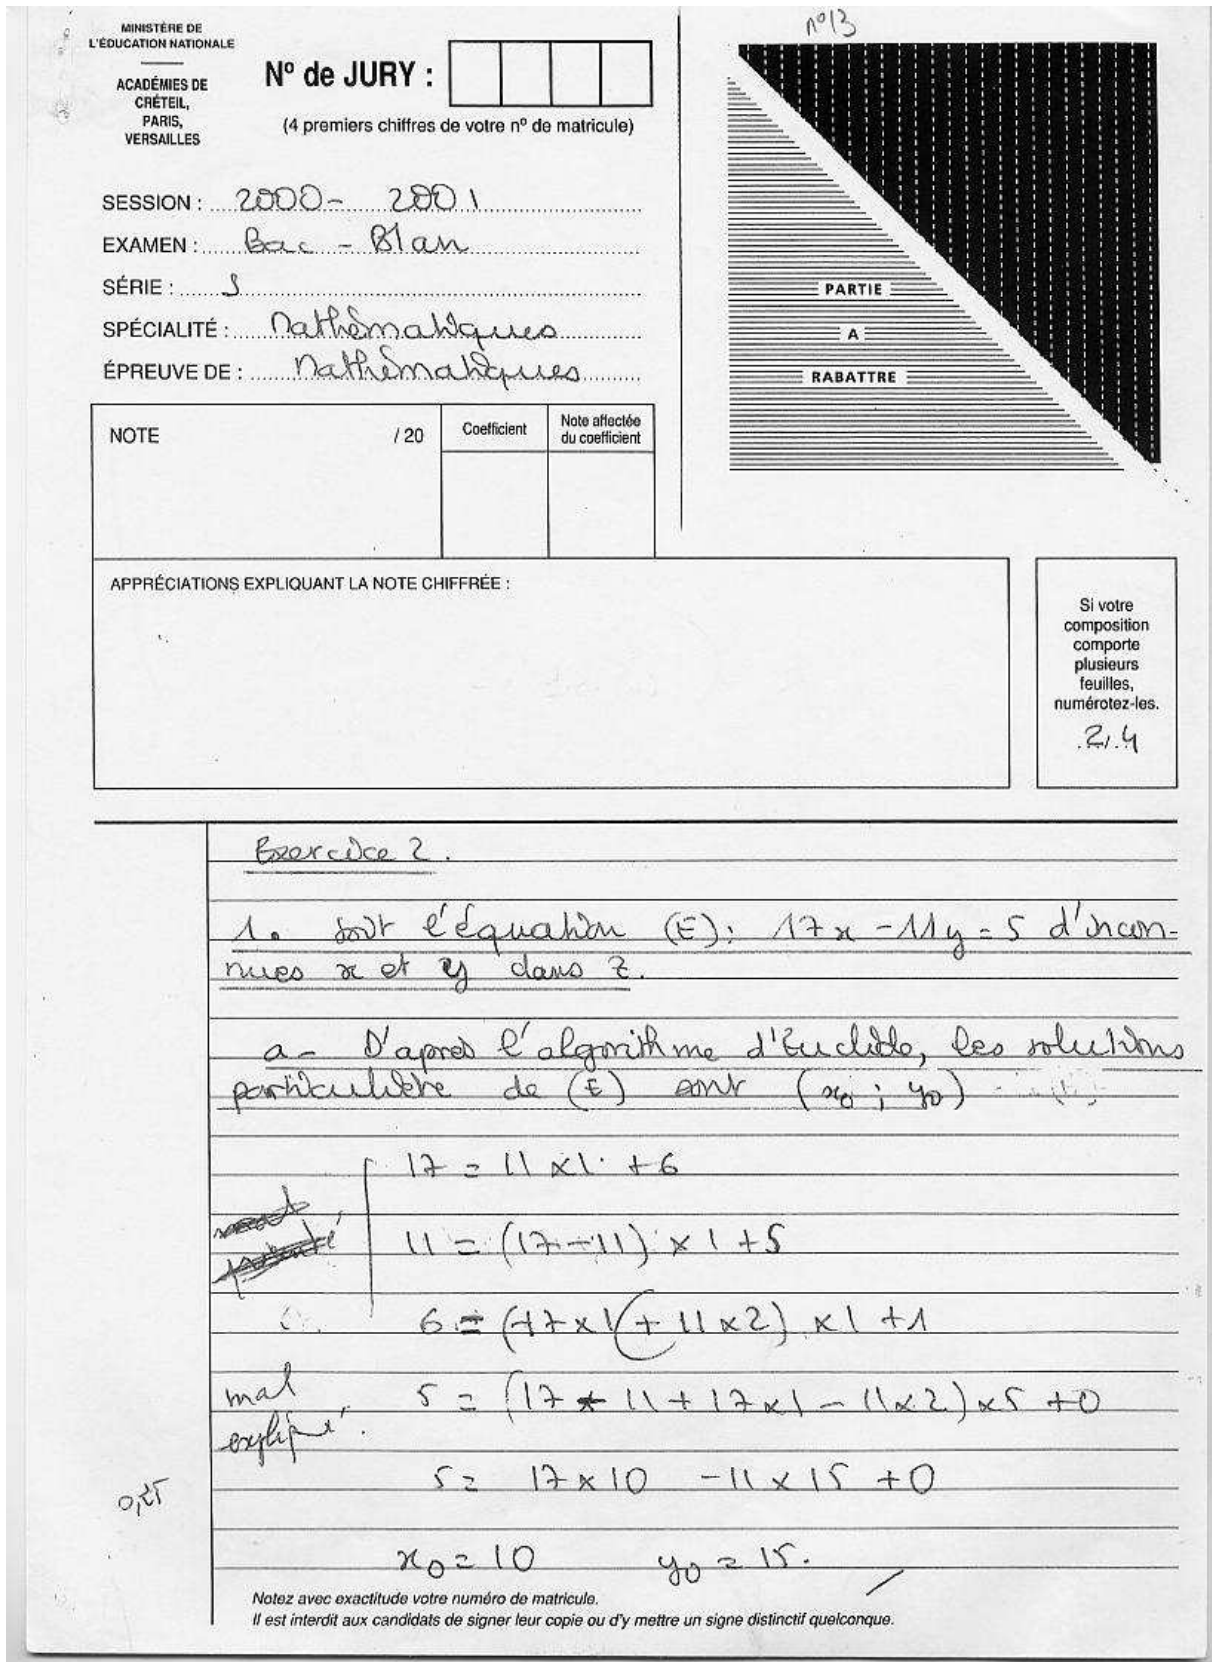 n°13
MINISTÈRE DE
L'ÉDUCATION NATIONALE
ACADÉMIES DE
CRÉTEIL,
PARIS,
VERSAILLES
N° de JURY :
(4 premiers chiffres de votre n° de matricule)
SESSION : 2000 - 2001
EXAMEN : Bac - Blan
SÉRIE : S
SPÉCIALITÉ : Mathématiques
ÉPREUVE DE : Mathématiques
PARTIE
A
RABATTRE
NOTE / 20
Coefficient
Note affectée
du coefficient
APPRÉCIATIONS EXPLIQUANT LA NOTE CHIFFRÉE :
Si votre
composition
comporte
plusieurs
feuilles,
numérotez-les.
2/4
Exercice 2.
1. soit l'équation (E): 17x - 11y = 5 d'incon-
nues x et y dans Z.
a - D'après l'algorithme d'Euclide, les solutions
particulière de (E) sont (x0 ; y0)
17 = 11 x 1 + 6
11 = (17 - 11) x 1 + 5
6 = (-17 x 1 + 11 x 2) x 1 + 1
mal
expliqué.
5 = (17 - 11 + 17 x 1 - 11 x 2) x 5 + 0
5 = 17 x 10 - 11 x 15 + 0
0,25
x0 = 10 y0 = 15.
Notez avec exactitude votre numéro de matricule.
Il est interdit aux candidats de signer leur copie ou d'y mettre un signe distinctif quelconque.